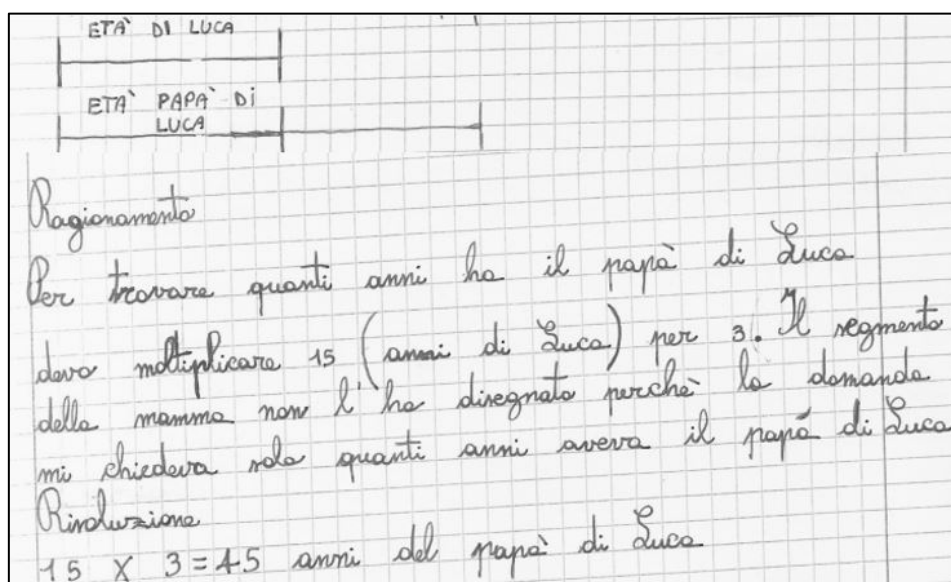 ETA' DI LUCA
ETA' PAPA' DI
LUCA
Ragionamento
Per trovare quanti anni ha il papà di Luca
devo moltiplicare 15 (anni di Luca) per 3. Il segmento
della mamma non l'ho disegnato perchè la domanda
mi chiedeva solo quanti anni aveva il papà di Luca
Risoluzione
15 X 3 = 45 anni del papà di Luca